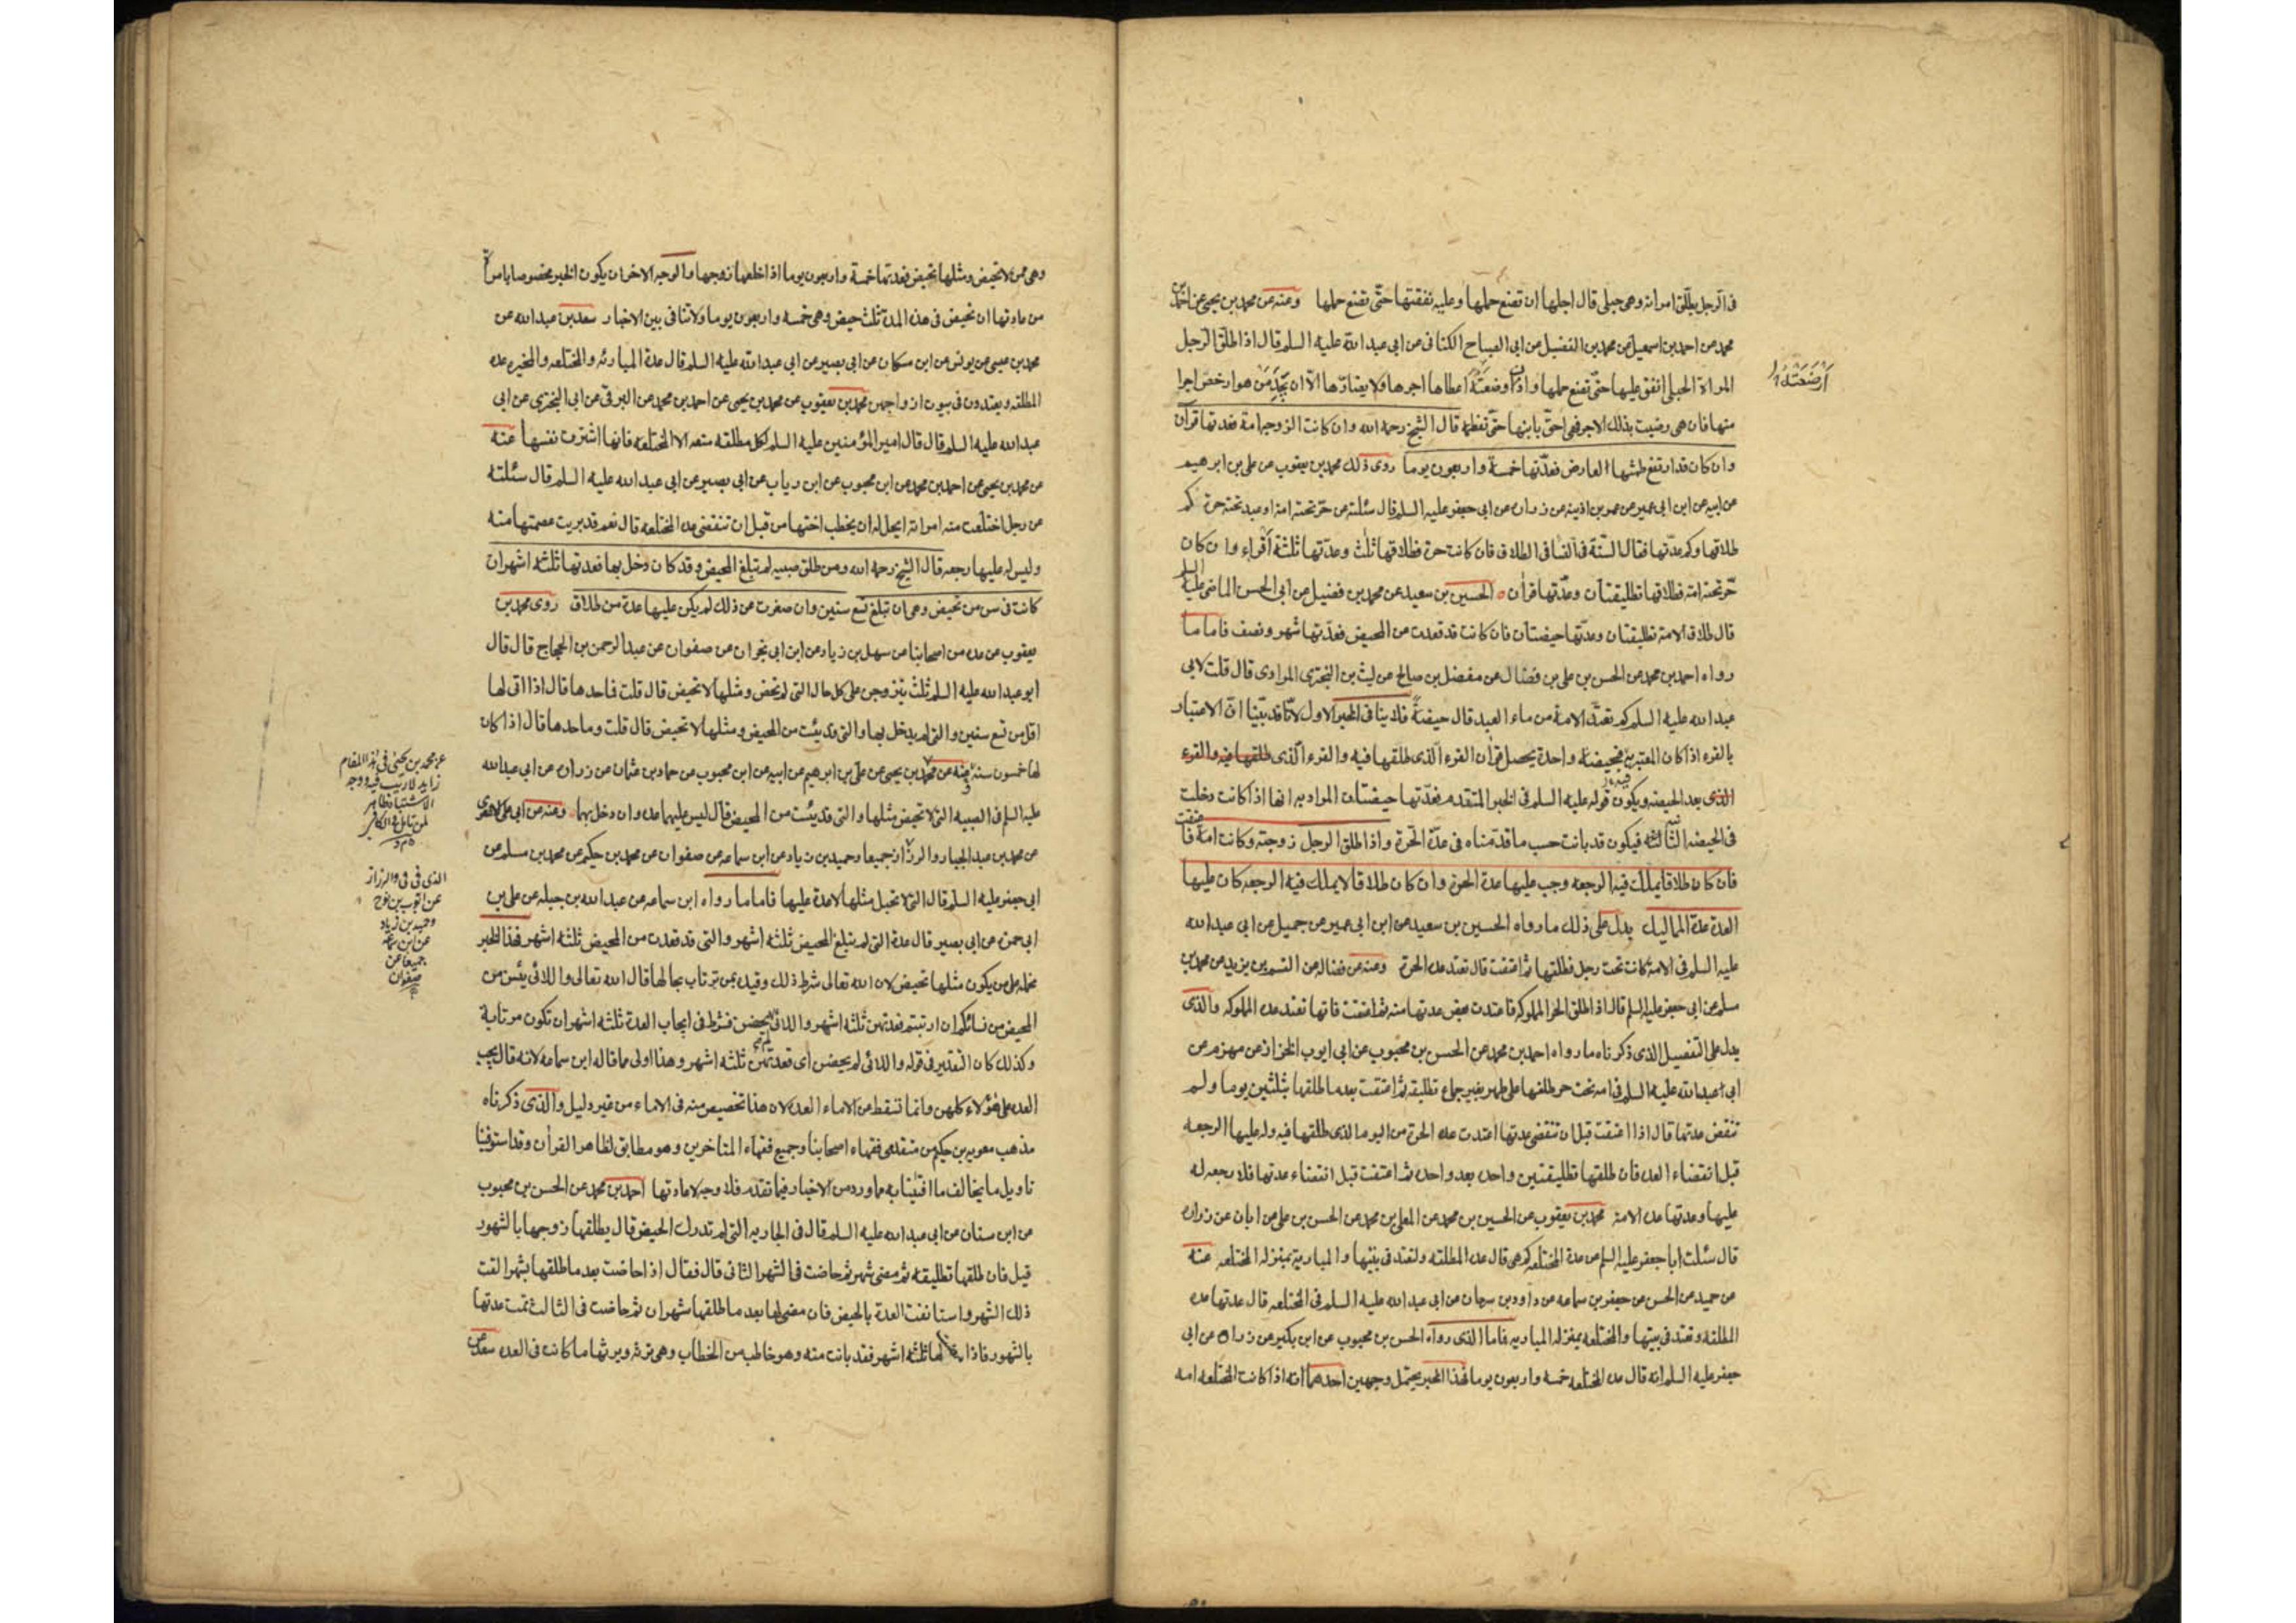 فى الرجل يطلق امراته وهى حبلى قال اجلها ان تضع حملها وعليه نفقتها حتى تضع حملها وعنه عن محمد بن يحيى عن احمد بن
محمد عن احمد بن اسمعيل عن محمد بن الفضيل عن ابى الصباح الكنانى عن ابى عبد الله عليه السلم قال اذا طلق الرجل
المراة الحبلى انفق عليها حتى تضع حملها واذا وضعته اعطاها اجرها ولا يضارها الا ان يجد من هو ارخص اجرا
أرضعته
منها فان هى رضيت بذلك الاجر فهى احق بابنها حتى تفطمه قال الشيخ رحمه الله وان كانت الزوجة امة فعدتها قرآن
وان كان قد ارتفع طمثها العارض فعدتها خمسة واربعون يوما روى ذلك محمد بن يعقوب عن على بن ابرهيم
عن ابيه عن ابن ابى عمير عن عمر بن اذينه عن زراره عن ابى جعفر عليه السلم قال سئلته عن حر تحته امة او عبد تحته حرة كم
طلاقها وكم عدتها فقال السنة فى النسا فى الطلاق فان كانت حرة فطلاقها ثلث وعدتها ثلثة أقراء وان كان
حر تحته امة فطلاقها تطليقتان وعدتها قرآن الحسين بن سعيد عن محمد بن فضيل عن ابى الحسن الماضى عليه السلم
قال طلاق الامة تطليقتان وعدتها حيضتان فان كانت قد قعدت من المحيض فعدتها شهر ونصف فاما ما
رواه احمد بن محمد عن الحسن بن على بن فضال عن مفضل بن صالح عن ليث بن البخترى المرادى قال قلت لابى
عبد الله عليه السلم كم تعتد الامة من ماء العبد قال حيضة فلا ينافى الخبر الاول لانا قد بينا ان الاعتبار
بالقرء اذا كان المعتبر به فبحيضة واحدة يحصل قرآن القرء الذى طلقها فيه والقرء الذى طلقها فيه والقرء
الذى بعد الحيضه ويكون قوله عليه السلم فى الخبر المتقدم فعدتها حيضتان المراد به انها اذا كانت دخلت
فى الحيضه الثانيه فيكون قد بانت حسب ما قدمناه فى عدة الحرة واذا طلق الرجل زوجته وكانت امة فاعتقت
فان كان طلاقا يملك فيه الرجعه وجب عليها عدة الحرة وان كان طلاقا لا يملك فيه الرجعه كان عليها
العدة عدة المماليك يدل على ذلك ما رواه الحسين بن سعيد عن ابن ابى عمير عن جميل عن ابى عبد الله
عليه السلم فى الامة كانت تحت رجل فطلقها ثم اعتقت قال تعتد عدة الحرة وعنه عن فضاله عن القسم بن بريد عن محمد بن
مسلم عن ابى جعفر عليه السلم قال اذا طلق الحر المملوكة فاعتدت بعض عدتها منه ثم اعتقت فانها تعتد عدة المملوكه والذى
يدل على التفصيل الذى ذكرناه ما رواه احمد بن محمد عن الحسن بن محبوب عن ابى ايوب الخزاز عن مهزم عن
ابى عبد الله عليه السلم فى امة تحت حر طلقها على طهر بغير جماع تطليقه ثم اعتقت بعد ما طلقها بثلثين يوما ولم
تنقض عدتها قال اذا اعتقت قبل ان تنقضى عدتها اعتدت عدة الحرة من اليوم الذى طلقها فيه وله عليها الرجعه
قبل انقضاء العده فان طلقها تطليقتين واحدة بعد واحدة ثم اعتقت قبل انقضاء عدتها فلا رجعه له
عليها وعدتها عدة الامة محمد بن يعقوب عن الحسين بن محمد عن المعلى بن محمد عن الحسن بن على عن ابان عن زراره
قال سئلت ابا جعفر عليه السلم عن عدة المختلعة كم هى قال عدة المطلقه ولتعتد فى بيتها والمباريه بمنزلة المختلعه عنه
عن حميد عن الحسن عن جعفر بن سماعه عن داود بن سرحان عن ابى عبد الله عليه السلم فى المختلعه قال عدتها عدة
المطلقه وتعتد فى بيتها والمختلعه بمنزله المباريه فاما الذى رواه الحسن بن محبوب عن ابن بكير عن زراره عن ابى
جعفر عليه السلم انه قال عدة المختلعه خمسة واربعون يوما فهذا الخبر يحتمل وجهين احدهما انه اذا كانت المختلعه امة
وهى ممن لا تحيض ومثلها تحيض فعدتها خمسة واربعون يوما اذا خلعها زوجها والوجه الاخر ان يكون الخبر مخصوصا بامراة
من عادتها ان تحيض فى هذه المدة ثلث حيض وهى خمسة واربعون يوما ولا تنافى بين الاخبار سعد بن عبد الله عن
محمد بن عيسى عن يونس عن ابن مسكان عن ابى بصير عن ابى عبد الله عليه السلم قال عدة المبارئه والمختلعه والمخيره عدة
المطلقه ويعتددن فى بيوت ازواجهن محمد بن يعقوب عن محمد بن يحيى عن احمد بن محمد عن البرقى عن ابى البخترى عن ابى
عبد الله عليه السلم قال قال امير المؤمنين عليه السلم لكل مطلقه متعه الا المختلعه فانها اشترت نفسها عنه
عن محمد بن يحيى عن احمد بن محمد عن ابن محبوب عن ابن رياب عن ابى بصير عن ابى عبد الله عليه السلم قال سئلته
عن رجل اختلعت منه امراته ايحل له ان يخطب اختها من قبل ان تنقضى عدة المختلعه قال نعم قد بريت عصمتها منه
وليس له عليها رجعه قال الشيخ رحمه الله ومن طلق صبيه لم تبلغ المحيض وقد كان دخل بها فعدتها ثلثه اشهر ان
كانت فى سن من تحيض وهى ان تبلغ تسع سنين وان صغرت عن ذلك لم يكن عليها عدة من طلاق روى محمد بن
يعقوب عن عدة من اصحابنا عن سهل بن زياد عن ابن ابى نجران عن صفوان عن عبد الرحمن بن الحجاج قال قال
ابو عبد الله عليه السلم ثلث يتزوجن على كل حال التى لم تحض ومثلها لا تحيض قال قلت فما حدها قال اذا اتى لها
اقل من تسع سنين والتى لم يدخل بها والتى قد يئست من المحيض ومثلها لا تحيض قال قلت وما حدها قال اذا كان
لها خمسون سنة وعنه عن محمد بن يحيى عن على بن ابرهيم عن ابيه عن ابن محبوب عن حماد بن عثمان عن زراره عن ابى عبد الله
عليه السلم فى الصبيه التى لا تحيض مثلها والتى قد يئست من المحيض قال ليس عليهما عدة وان دخل بهما وعنه عن ابى على الاشعرى
عن محمد بن عبد الجبار والرزاز جميعا وحميد بن زياد عن ابن سماعه عن صفوان عن محمد بن حكيم عن محمد بن مسلم عن
ابى جعفر عليه السلم قال التى لا تحبل مثلها لا عدة عليها فاما ما رواه ابن سماعه عن عبد الله بن جبله عن على بن
ابى حمزه عن ابى بصير قال عدة التى لم تبلغ المحيض ثلثه اشهر والتى قد قعدت من المحيض ثلثه اشهر فهذا الخبر
نحمله على من يكون مثلها تحيض لان الله تعالى شرط ذلك وقيده بمن ترتاب بحالها قال الله تعالى واللائى يئسن من
المحيض من نسائكم ان ارتبتم فعدتهن ثلثه اشهر واللائى لم يحضن فشرط فى ايجاب العدة ثلثه اشهر ان تكون مرتابة
وكذلك كان التقدير فى قوله واللائى لم يحضن اى فعدتهن ثلثه اشهر وهذا اولى مما قاله ابن سماعه لانه قال يجب
العدة على هؤلاء كلهن وانما تسقط عن الاماء العده لان هذا تخصيص منه فى الاماء من غير دليل والذى ذكرناه
مذهب معويه بن حكيم من متقدمى فقهاء اصحابنا وجميع فقهاء المتاخرين وهو مطابق لظاهر القرآن وقد استوفينا
تاويل ما يخالف ما افتينا به مما ورد من الاخبار فيما تقدم فلا وجه لاعادتها احمد بن محمد عن الحسن بن محبوب
عن ابن سنان عن ابى عبد الله عليه السلم قال فى الجاريه التى لم تدرك الحيض قال يطلقها زوجها بالشهور
قيل فان طلقها تطليقه ثم مضى شهر ثم حاضت فى الشهر الثانى قال فقال اذا حاضت بعد ما طلقها بشهر القت
ذلك الشهر واستانفت العدة بالحيض فان مضى لها بعد ما طلقها شهران ثم حاضت فى الثالث تمت عدتها
بالشهور فاذا مضى لها ثلثه اشهر فقد بانت منه وهو خاطب من الخطاب وهى ترثه ويرثها ما كانت فى العده سعد عن
عن محمد بن يحيى فى هذا المقام
زايد لا ريب فيه ووجه
الاشتباه ظاهر
لمن تامل فى الكافى
الذى فى فى والرزاز
عن ايوب بن نوح
وحميد بن زياد
عن ابن سماعه
جميعا عن
صفوان